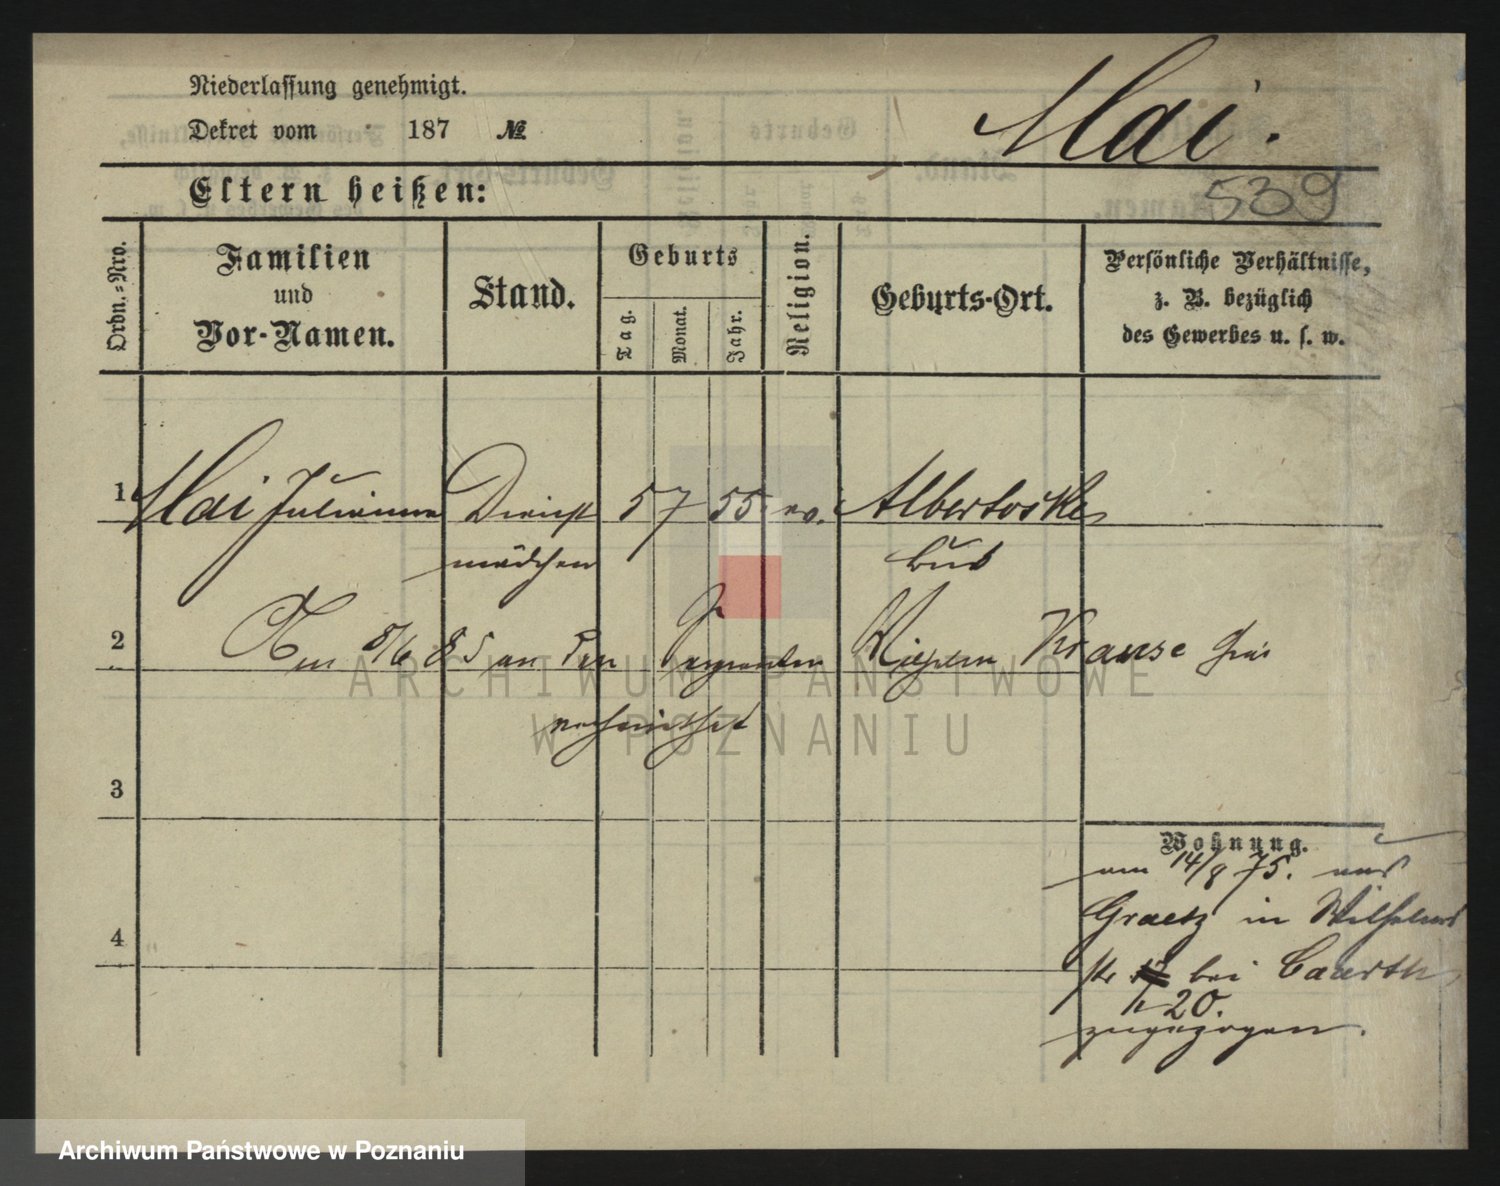 Niederlassung genehmigt.
Dekret vom 187 №
Mai.
Eltern heißen:
539
Ordn.=Nro.
Familien
und
Vor-Namen.
Stand.
Geburts
Tag.
Monat.
Jahr.
Religion.
Geburts-Ort.
Persönliche Verhältnisse,
z. B. bezüglich
des Gewerbes u. s. w.
1 Mai Julianna Dienst 5 7 55 ev. Albertoske
mädchen
2
Am 8/6 85 an den Krause hier
verheirathet
ARCHIWUM PAŃSTWOWE
W POZNANIU
3
Wohnung.
am 14/8 75. aus
Graetz in Wilhelms
4
str bei
20.
zugezogen.
Archiwum Państwowe w Poznaniu